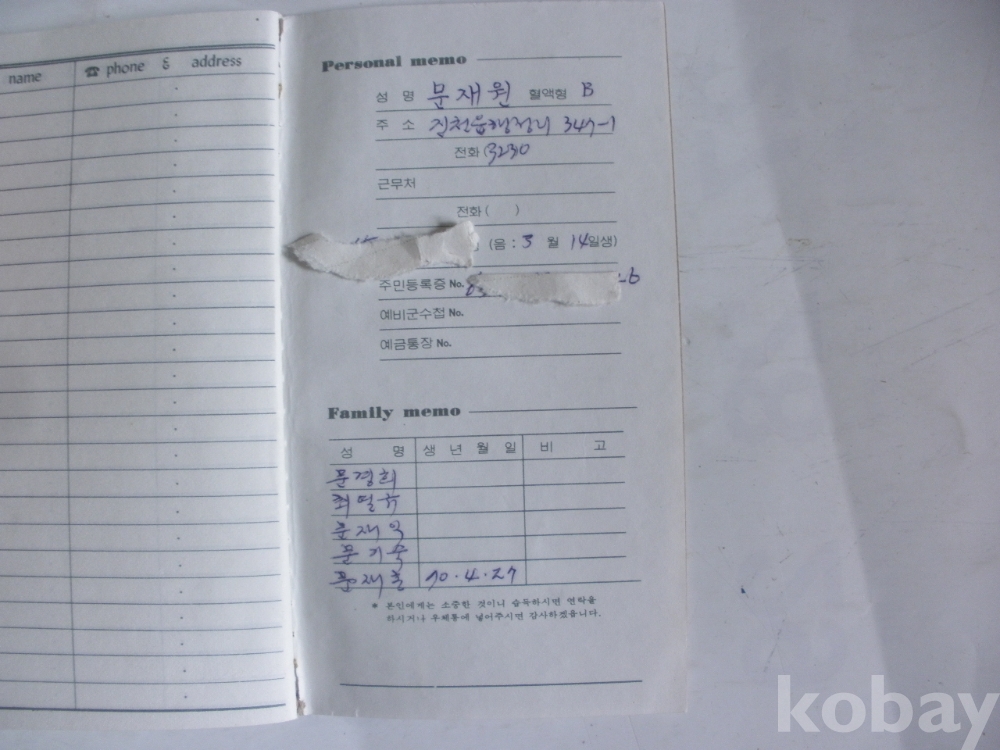 name ☎ phone & address
Personal memo
성 명 문재원 혈액형 B
주 소 진천읍행정리 347-1
전화 (3230
근무처
전화 ( )
(음 : 3 월 14일생)
주민등록증 No. 6
예비군수첩 No.
예금통장 No.
Family memo
성 명 생 년 월 일 비 고
문경희
최덜규
문재익
문기숙
문재훈 70.4.27
* 본인에게는 소중한 것이니 습득하시면 연락을
하시거나 우체통에 넣어주시면 감사하겠읍니다.
kobay